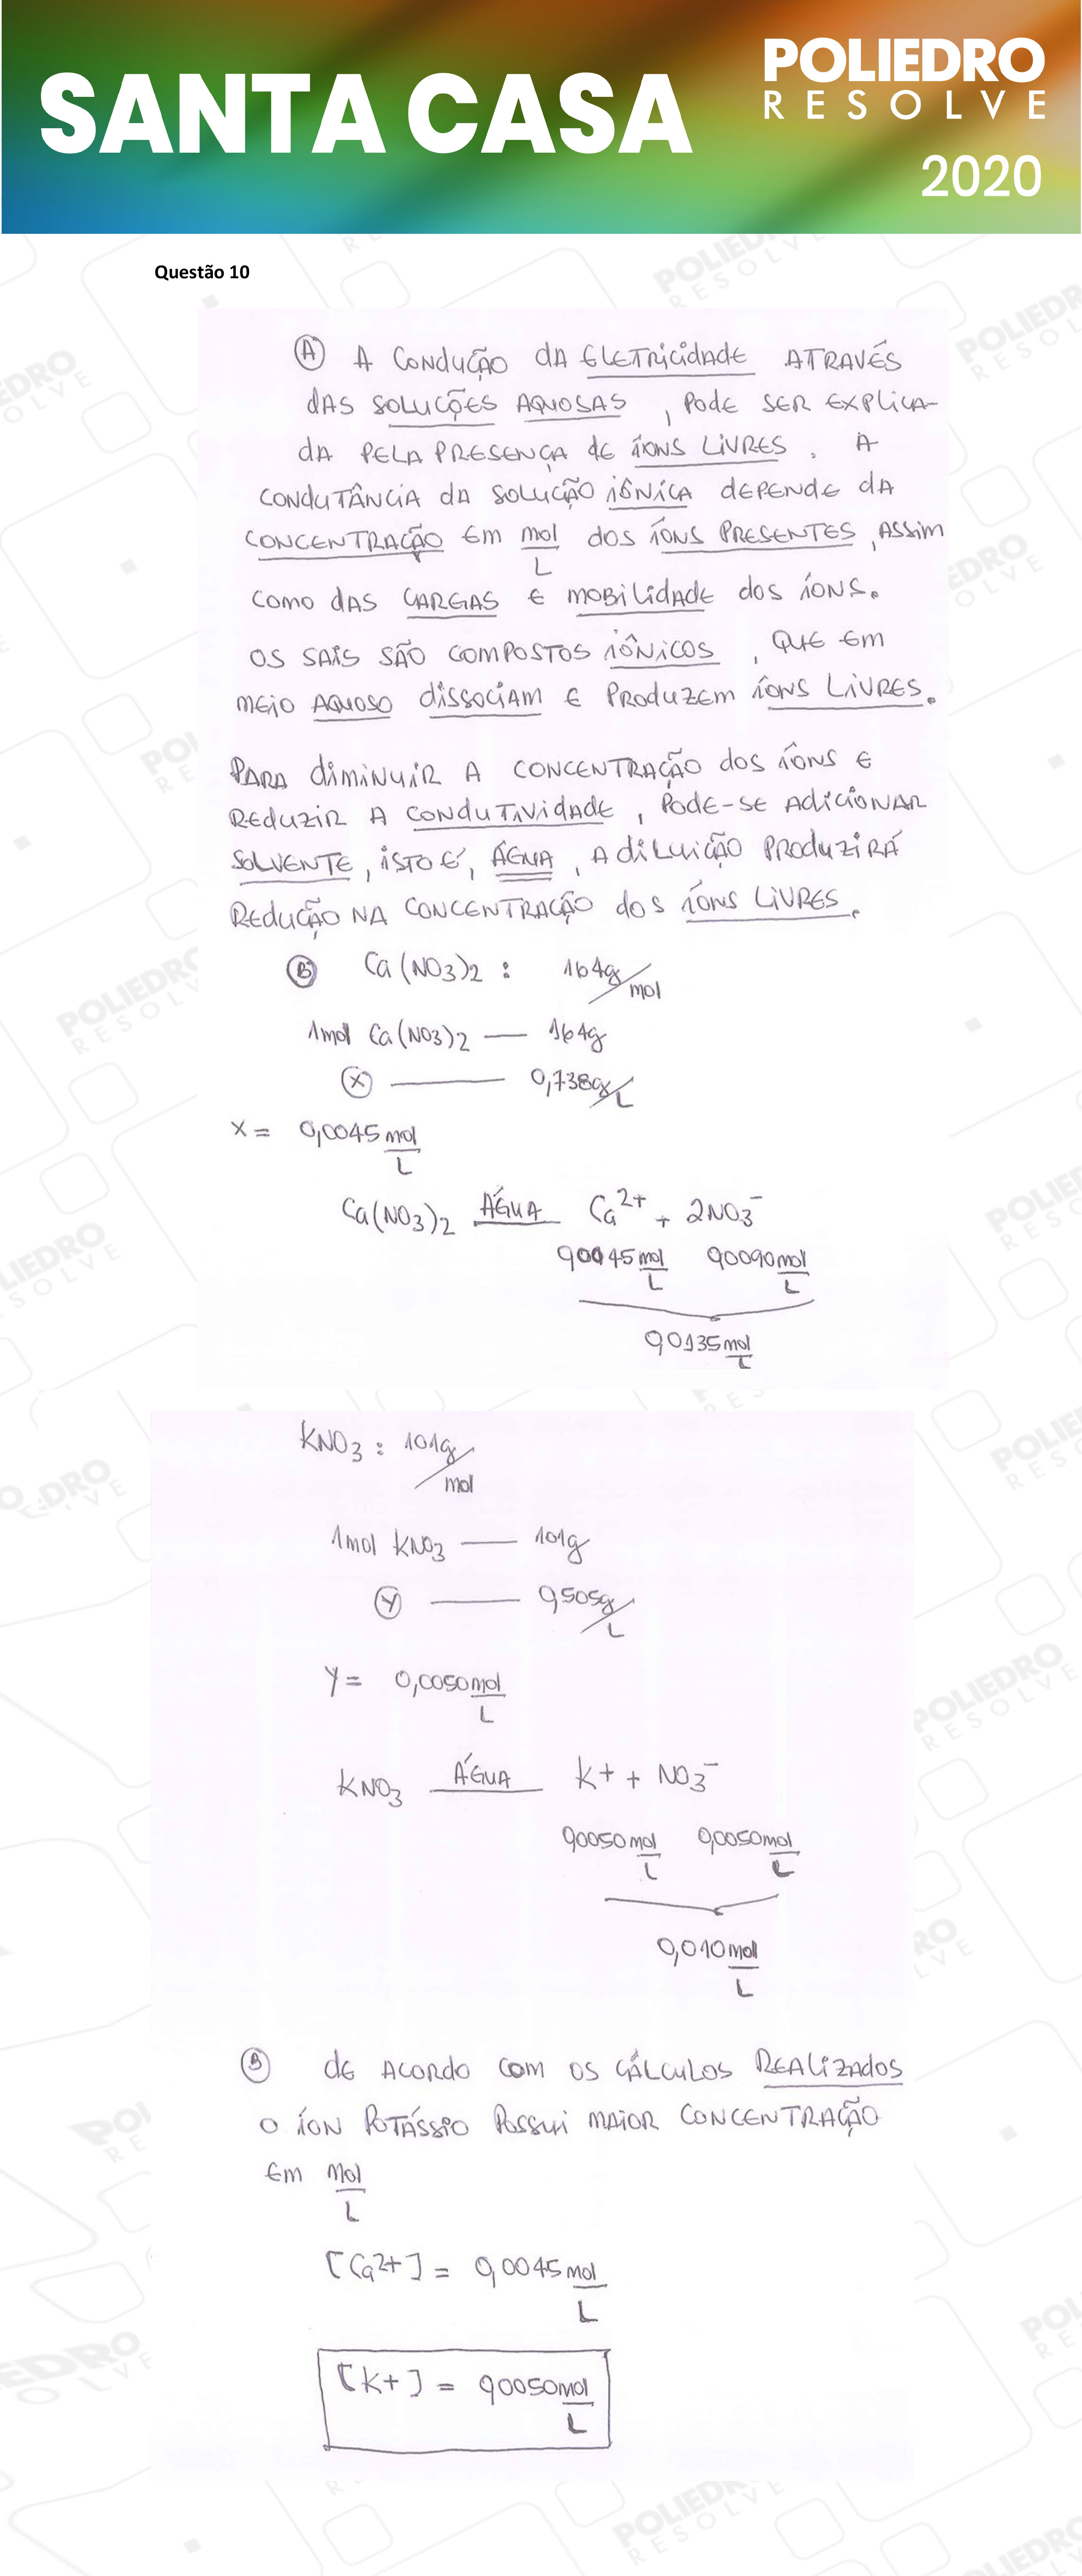 SANTA CASA
POLIEDRO
RESOLVE
2020
Questão 10
(A) A CONDUÇÃO DA ELETRICIDADE ATRAVÉS
DAS SOLUÇÕES AQUOSAS, PODE SER EXPLICA-
DA PELA PRESENÇA DE ÍONS LIVRES. A
CONDUTÂNCIA DA SOLUÇÃO IÔNICA DEPENDE DA
CONCENTRAÇÃO EM mol/L DOS ÍONS PRESENTES, ASSIM
COMO DAS CARGAS E MOBILIDADE DOS ÍONS.
OS SAIS SÃO COMPOSTOS IÔNICOS, QUE EM
MEIO AQUOSO DISSOCIAM E PRODUZEM ÍONS LIVRES.
PARA DIMINUIR A CONCENTRAÇÃO DOS ÍONS E
REDUZIR A CONDUTIVIDADE, PODE-SE ADICIONAR
SOLVENTE, ISTO É, ÁGUA, A DILUIÇÃO PRODUZIRÁ
REDUÇÃO NA CONCENTRAÇÃO DOS ÍONS LIVRES.
(B) Ca(NO3)2 : 164g/mol
1mol Ca(NO3)2 — 164g
(X) — 0,738g/L
X = 0,0045 mol/L
Ca(NO3)2 ÁGUA Ca2+ + 2NO3-
0,0045 mol/L 0,0090 mol/L
0,0135 mol/L
KNO3 : 101g/mol
1mol KNO3 — 101g
(Y) — 0,505g/L
Y = 0,0050 mol/L
KNO3 ÁGUA K+ + NO3-
0,0050 mol/L 0,0050 mol/L
0,010 mol/L
(B) DE ACORDO COM OS CÁLCULOS REALIZADOS
O ÍON POTÁSSIO POSSUI MAIOR CONCENTRAÇÃO
EM Mol/L
[Ca2+] = 0,0045 mol/L
[K+] = 0,0050 mol/L